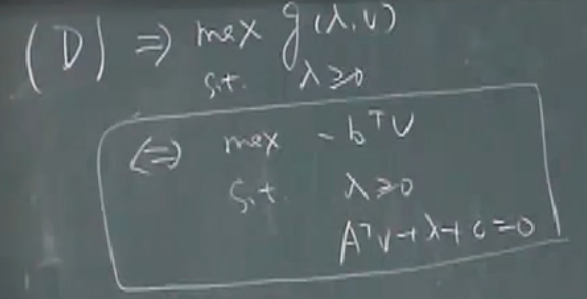 (D) ⇒ max g(λ,v)
s.t. λ≥0
⇔ max -bᵀv
s.t. λ≥0
Aᵀv+λ+c=0